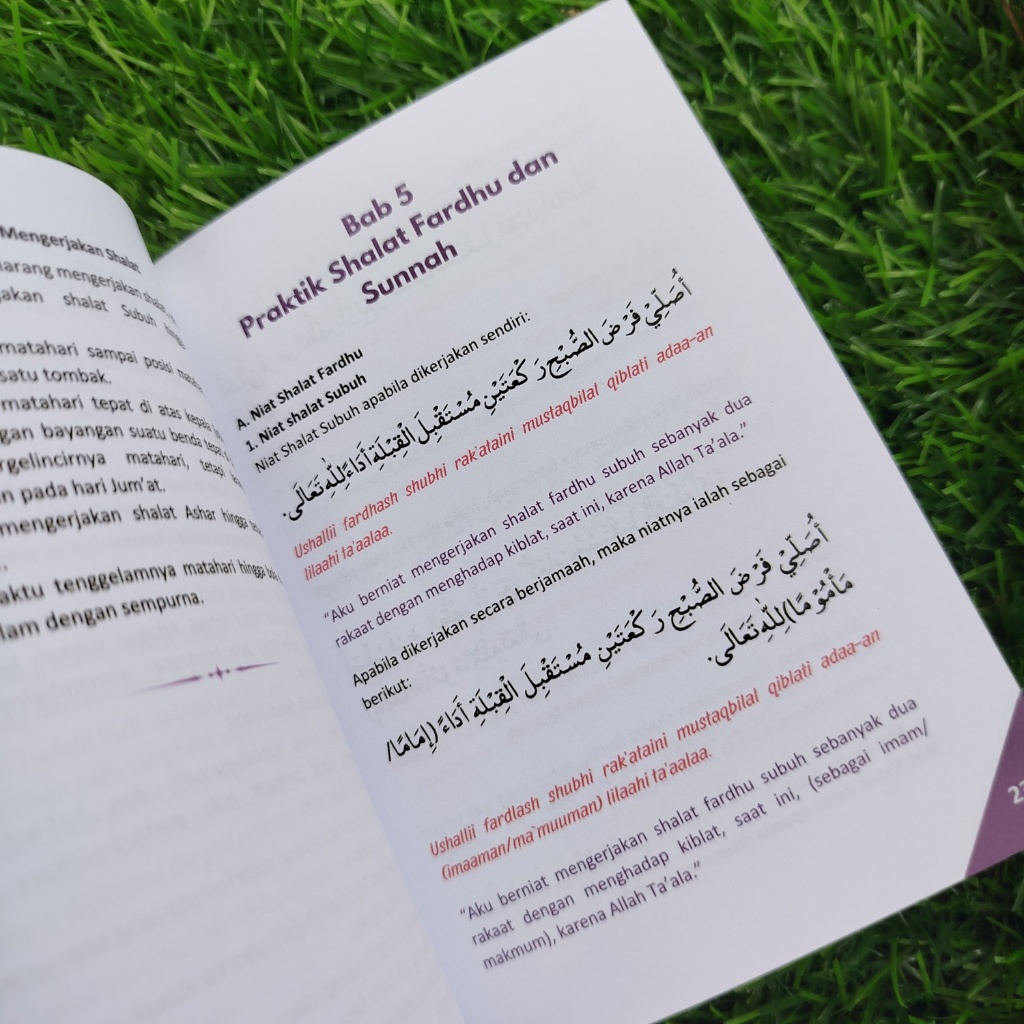 Mengerjakan Shalat
mengerjakan
shalat Subuh
matahari sampai posisi
satu tombak.
matahari tepat di atas kepala
bayangan suatu benda tepat
matahari, tetapi
pada hari Jum'at.
mengerjakan shalat Ashar hingga
tenggelamnya matahari hingga
dengan sempurna.
Bab 5
Praktik Shalat Fardhu dan
Sunnah
A. Niat Shalat Fardhu
1. Niat shalat Subuh
Niat Shalat Subuh apabila dikerjakan sendiri:
أُصَلِّيْ فَرْضَ الصُّبْحِ رَكْعَتَيْنِ مُسْتَقْبِلَ الْقِبْلَةِ أَدَاءً لِلّٰهِ تَعَالَى.
Ushallii fardhash shubhi rak'ataini mustaqbilal qiblati adaa-an
lilaahi ta'aalaa.
“Aku berniat mengerjakan shalat fardhu subuh sebanyak dua
rakaat dengan menghadap kiblat, saat ini, karena Allah Ta'ala.”
Apabila dikerjakan secara berjamaah, maka niatnya ialah sebagai
berikut:
أُصَلِّيْ فَرْضَ الصُّبْحِ رَكْعَتَيْنِ مُسْتَقْبِلَ الْقِبْلَةِ أَدَاءً (إِمَامًا/
مَأْمُوْمًا) لِلّٰهِ تَعَالَى.
Ushallii fardlash shubhi rak'ataini mustaqbilal qiblati adaa-an
(imaaman/ma`muuman) lilaahi ta'aalaa.
“Aku berniat mengerjakan shalat fardhu subuh sebanyak dua
rakaat dengan menghadap kiblat, saat ini, (sebagai imam/
makmum), karena Allah Ta'ala.”